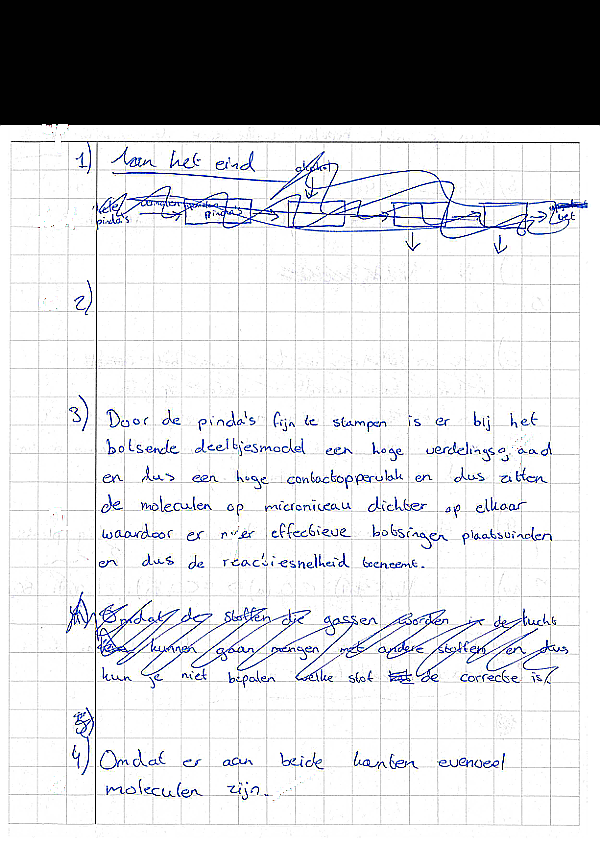 1) Aan het eind
alcohol
hele
pinda's
pinda's
vet
2)
3) Door de pinda's fijn te stampen is er bij het
botsende deeltjesmodel een hoge verdelingsgraad
en dus een hoge contactoppervlak en dus zitten
de moleculen op microniveau dichter op elkaar
waardoor er meer effectieve botsingen plaatsvinden
en dus de reactiesnelheid toeneemt.
Omdat de stoffen die gassen worden in de lucht
kunnen gaan mengen met andere stoffen en dus
kun je niet bepalen welke stof de correcte is.
4) Omdat er aan beide kanten evenveel
moleculen zijn.